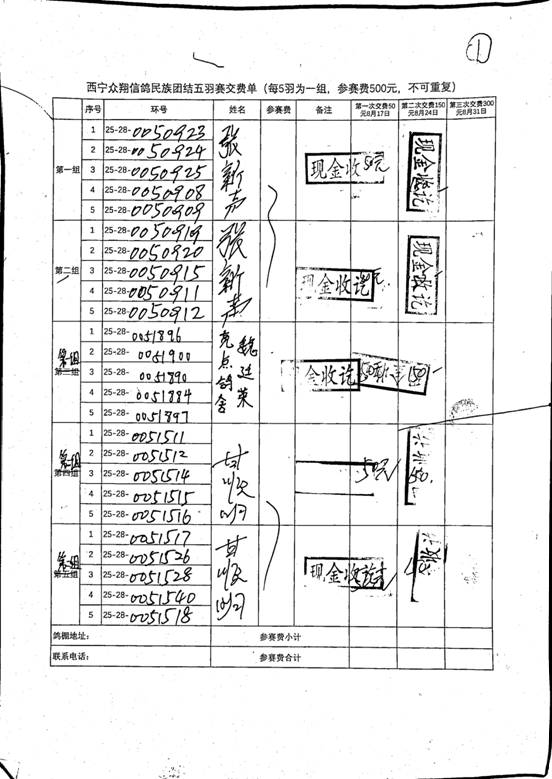 1
西宁众翔信鸽民族团结五羽赛交费单（每5羽为一组，参赛费500元，不可重复）
序号 环号 姓名 参赛费 备注 第一次交费50元8月17日 第二次交费150元8月24日 第三次交费300元8月31日
第一组
1 25-28-0050923
2 25-28-0050924
3 25-28-0050925
4 25-28-0050908
5 25-28-0050909
张新
现金收 50元
现金收讫
第二组
1 25-28-0050919
2 25-28-0050920
3 25-28-0050915
4 25-28-0050911
5 25-28-0050912
张新
现金收讫
现金收讫
第一组
第三组
1 25-28-0051896
2 25-28-0051900
3 25-28-0051890
4 25-28-0051884
5 25-28-0051897
亮点鸽舍
魏廷荣
金收讫 50
150
第四组
1 25-28-0051511
2 25-28-0051512
3 25-28-0051514
4 25-28-0051515
5 25-28-0051516
甘顺
50元
150
第五组
1 25-28-0051517
2 25-28-0051526
3 25-28-0051528
4 25-28-0051540
5 25-28-0051518
甘顺
现金收讫
鸽棚地址： 参赛费小计
联系电话： 参赛费合计